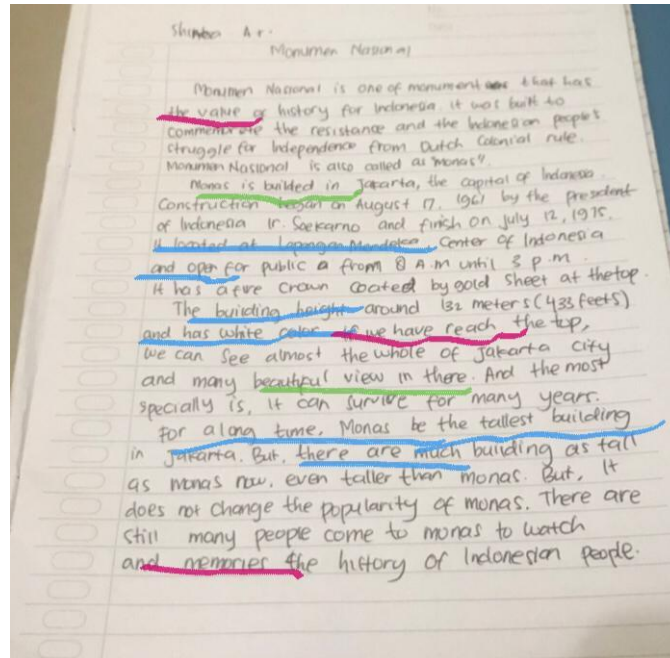 Shinta A r.
Monumen Nasional
Monumen Nasional is one of monument that has
the value of history for Indonesia. It was built to
commemorate the resistance and the Indonesian people's
struggle for Independence from Dutch Colonial rule.
Monumen Nasional is also called as "monas".
Monas is builded in Jakarta, the capital of Indonesia
Construction began on August 17, 1961 by the president
of Indonesia Ir. Soekarno and finish on july 12, 1975.
It located at Lapangan Merdeka Center of Indonesia
and open for public from 8 A.m until 3 p.m.
It has a fire crown coated by gold sheet at the top.
The building height around 132 meters (433 feets)
and has white color. If we have reach the top,
we can see almost the whole of Jakarta city
and many beautiful view in there. And the most
specially is, it can survive for many years.
For along time, Monas be the tallest building
in Jakarta. But, there are much building as tall
as monas now, even taller than monas. But, it
does not change the popularity of monas. There are
still many people come to monas to watch
and memories the history of Indonesian people.